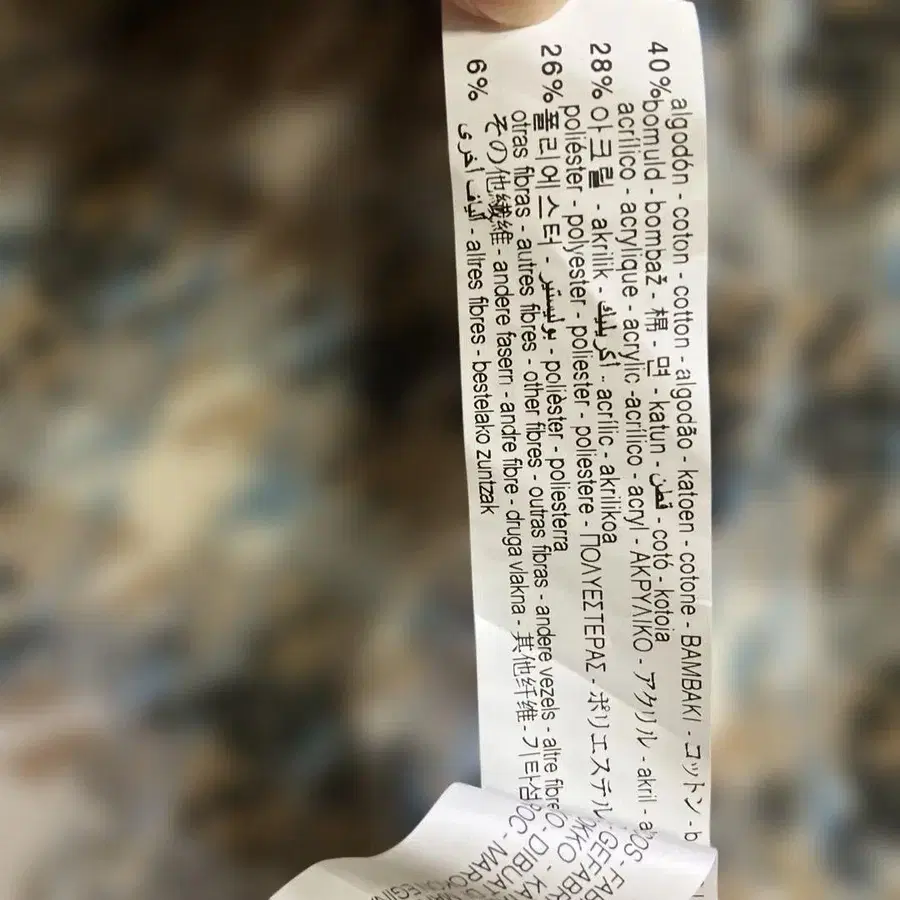 algodón - coton - cotton - algodão - katoen - cotone - ΒΑΜΒΑΚΙ - コットン - b
40%bomuld - bombaž - 棉 - 면 - katun - قطن - cotó - kotoja
acrílico - acrylique - acrylic -acrílico - acryl - ΑΚΡΥΛΙΚΟ - アクリル - akril - a
28% 아크릴 - akrilik - اكريليك - acrílic - akrilikoa
poliéster - polyester - poliester - poliestere - ΠΟΛΥΕΣΤΕΡΑΣ - ポリエステル
26%폴리에스터 - بوليستير - polièster - poliesterra
otras fibras - autres fibres - other fibres - outras fibras - andere vezels - altre fibre
その他繊維 - andere fasern - andre fibre - druga vlakna - 其他纤维 - 기타섬
6% ألياف أخرى - altres fibres - bestelako zuntzak